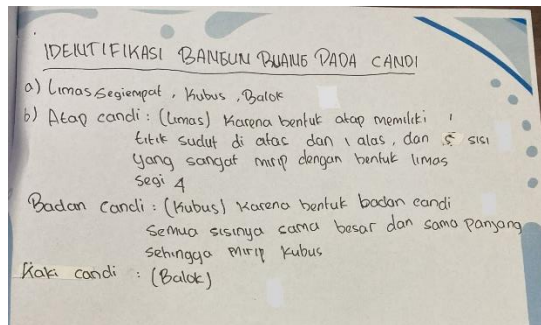 IDENTIFIKASI BANGUN RUANG PADA CANDI
a) Limas segiempat, Kubus, Balok
b) Atap candi : (Limas) Karena bentuk atap memiliki 1
titik sudut di atas dan 1 alas, dan 5 sisi
yang sangat mirip dengan bentuk limas
segi 4
Badan candi : (Kubus) Karena bentuk badan candi
semua sisinya sama besar dan sama panjang
sehingga mirip kubus
Kaki candi : (Balok)